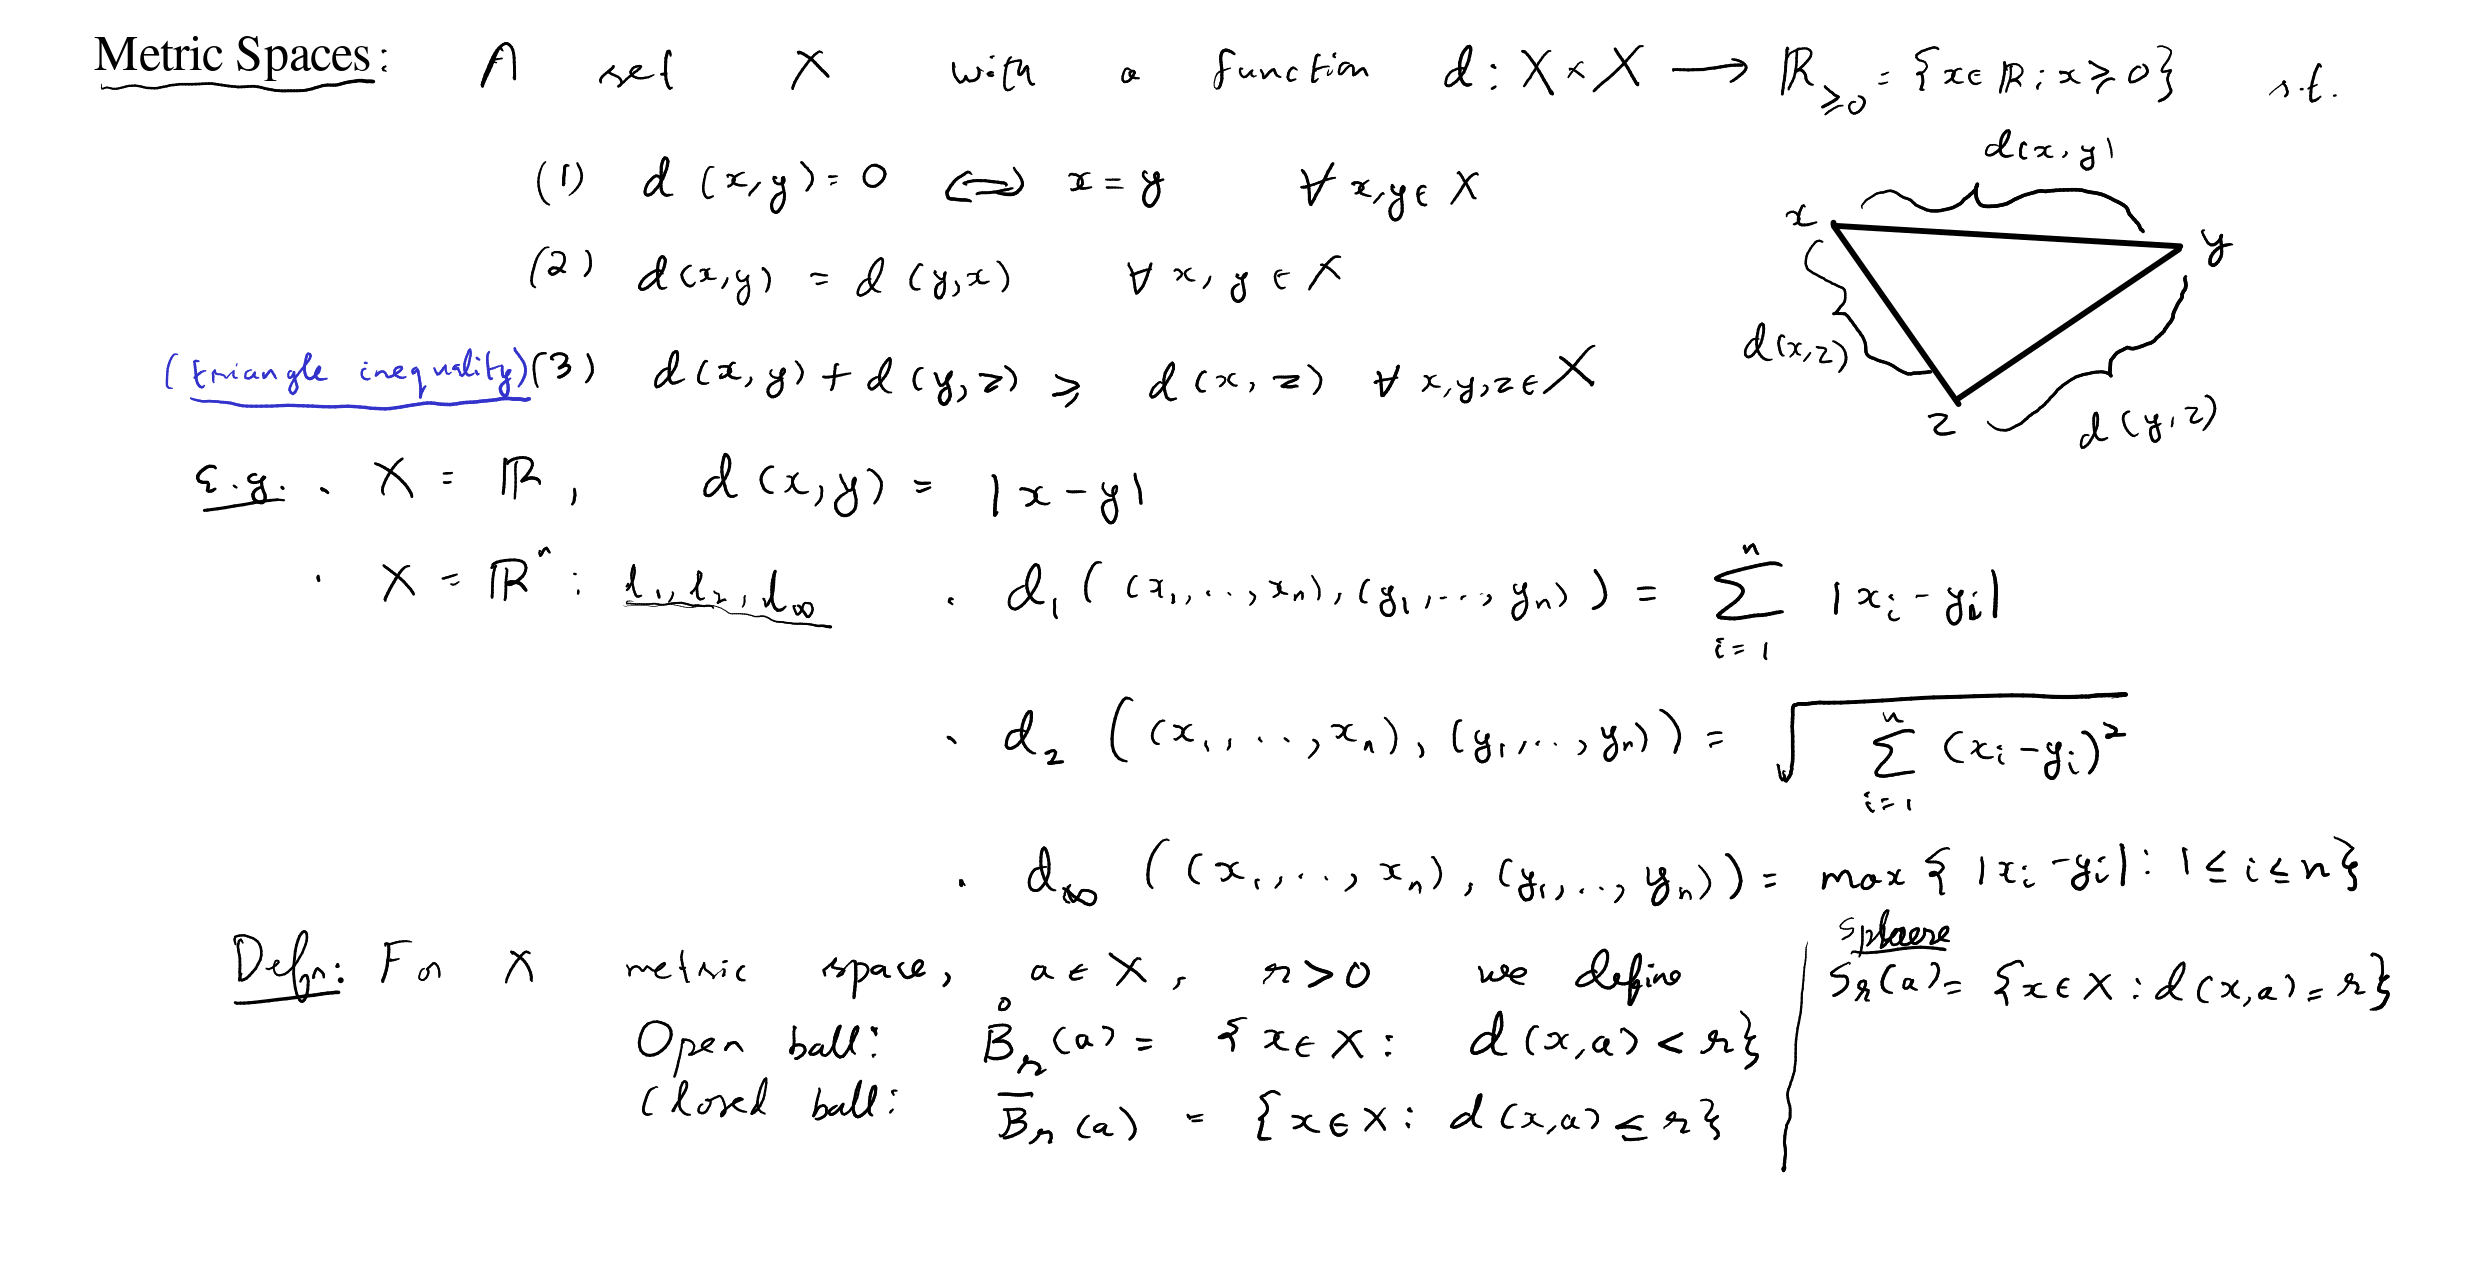 Metric Spaces: A set X with a function d: X × X ⟶ ℝ_{≥0} = {x ∈ ℝ : x ≥ 0} s.t.
(1) d(x,y) = 0 ⟺ x = y ∀ x,y ∈ X
(2) d(x,y) = d(y,x) ∀ x, y ∈ X
(triangle inequality) (3) d(x,y) + d(y,z) ≥ d(x,z) ∀ x,y,z ∈ X
d(x,y)
x
y
d(x,z)
z
d(y,z)
E.g. . X = ℝ, d(x,y) = |x-y|
. X = ℝ^n : l_1, l_2, l_∞ . d_1((x_1,..,x_n),(y_1,..,y_n)) = ∑_{i=1}^{n} |x_i - y_i|
. d_2((x_1,..,x_n),(y_1,..,y_n)) = √(∑_{i=1}^{n} (x_i - y_i)^2)
. d_∞((x_1,..,x_n),(y_1,..,y_n)) = max{|x_i - y_i| : 1 ≤ i ≤ n}
Defn: For X metric space, a ∈ X, r > 0 we define
Open ball: B̊_r(a) = {x ∈ X : d(x,a) < r}
Closed ball: B̅_r(a) = {x ∈ X : d(x,a) ≤ r}
Sphere
S_r(a) = {x ∈ X : d(x,a) = r}